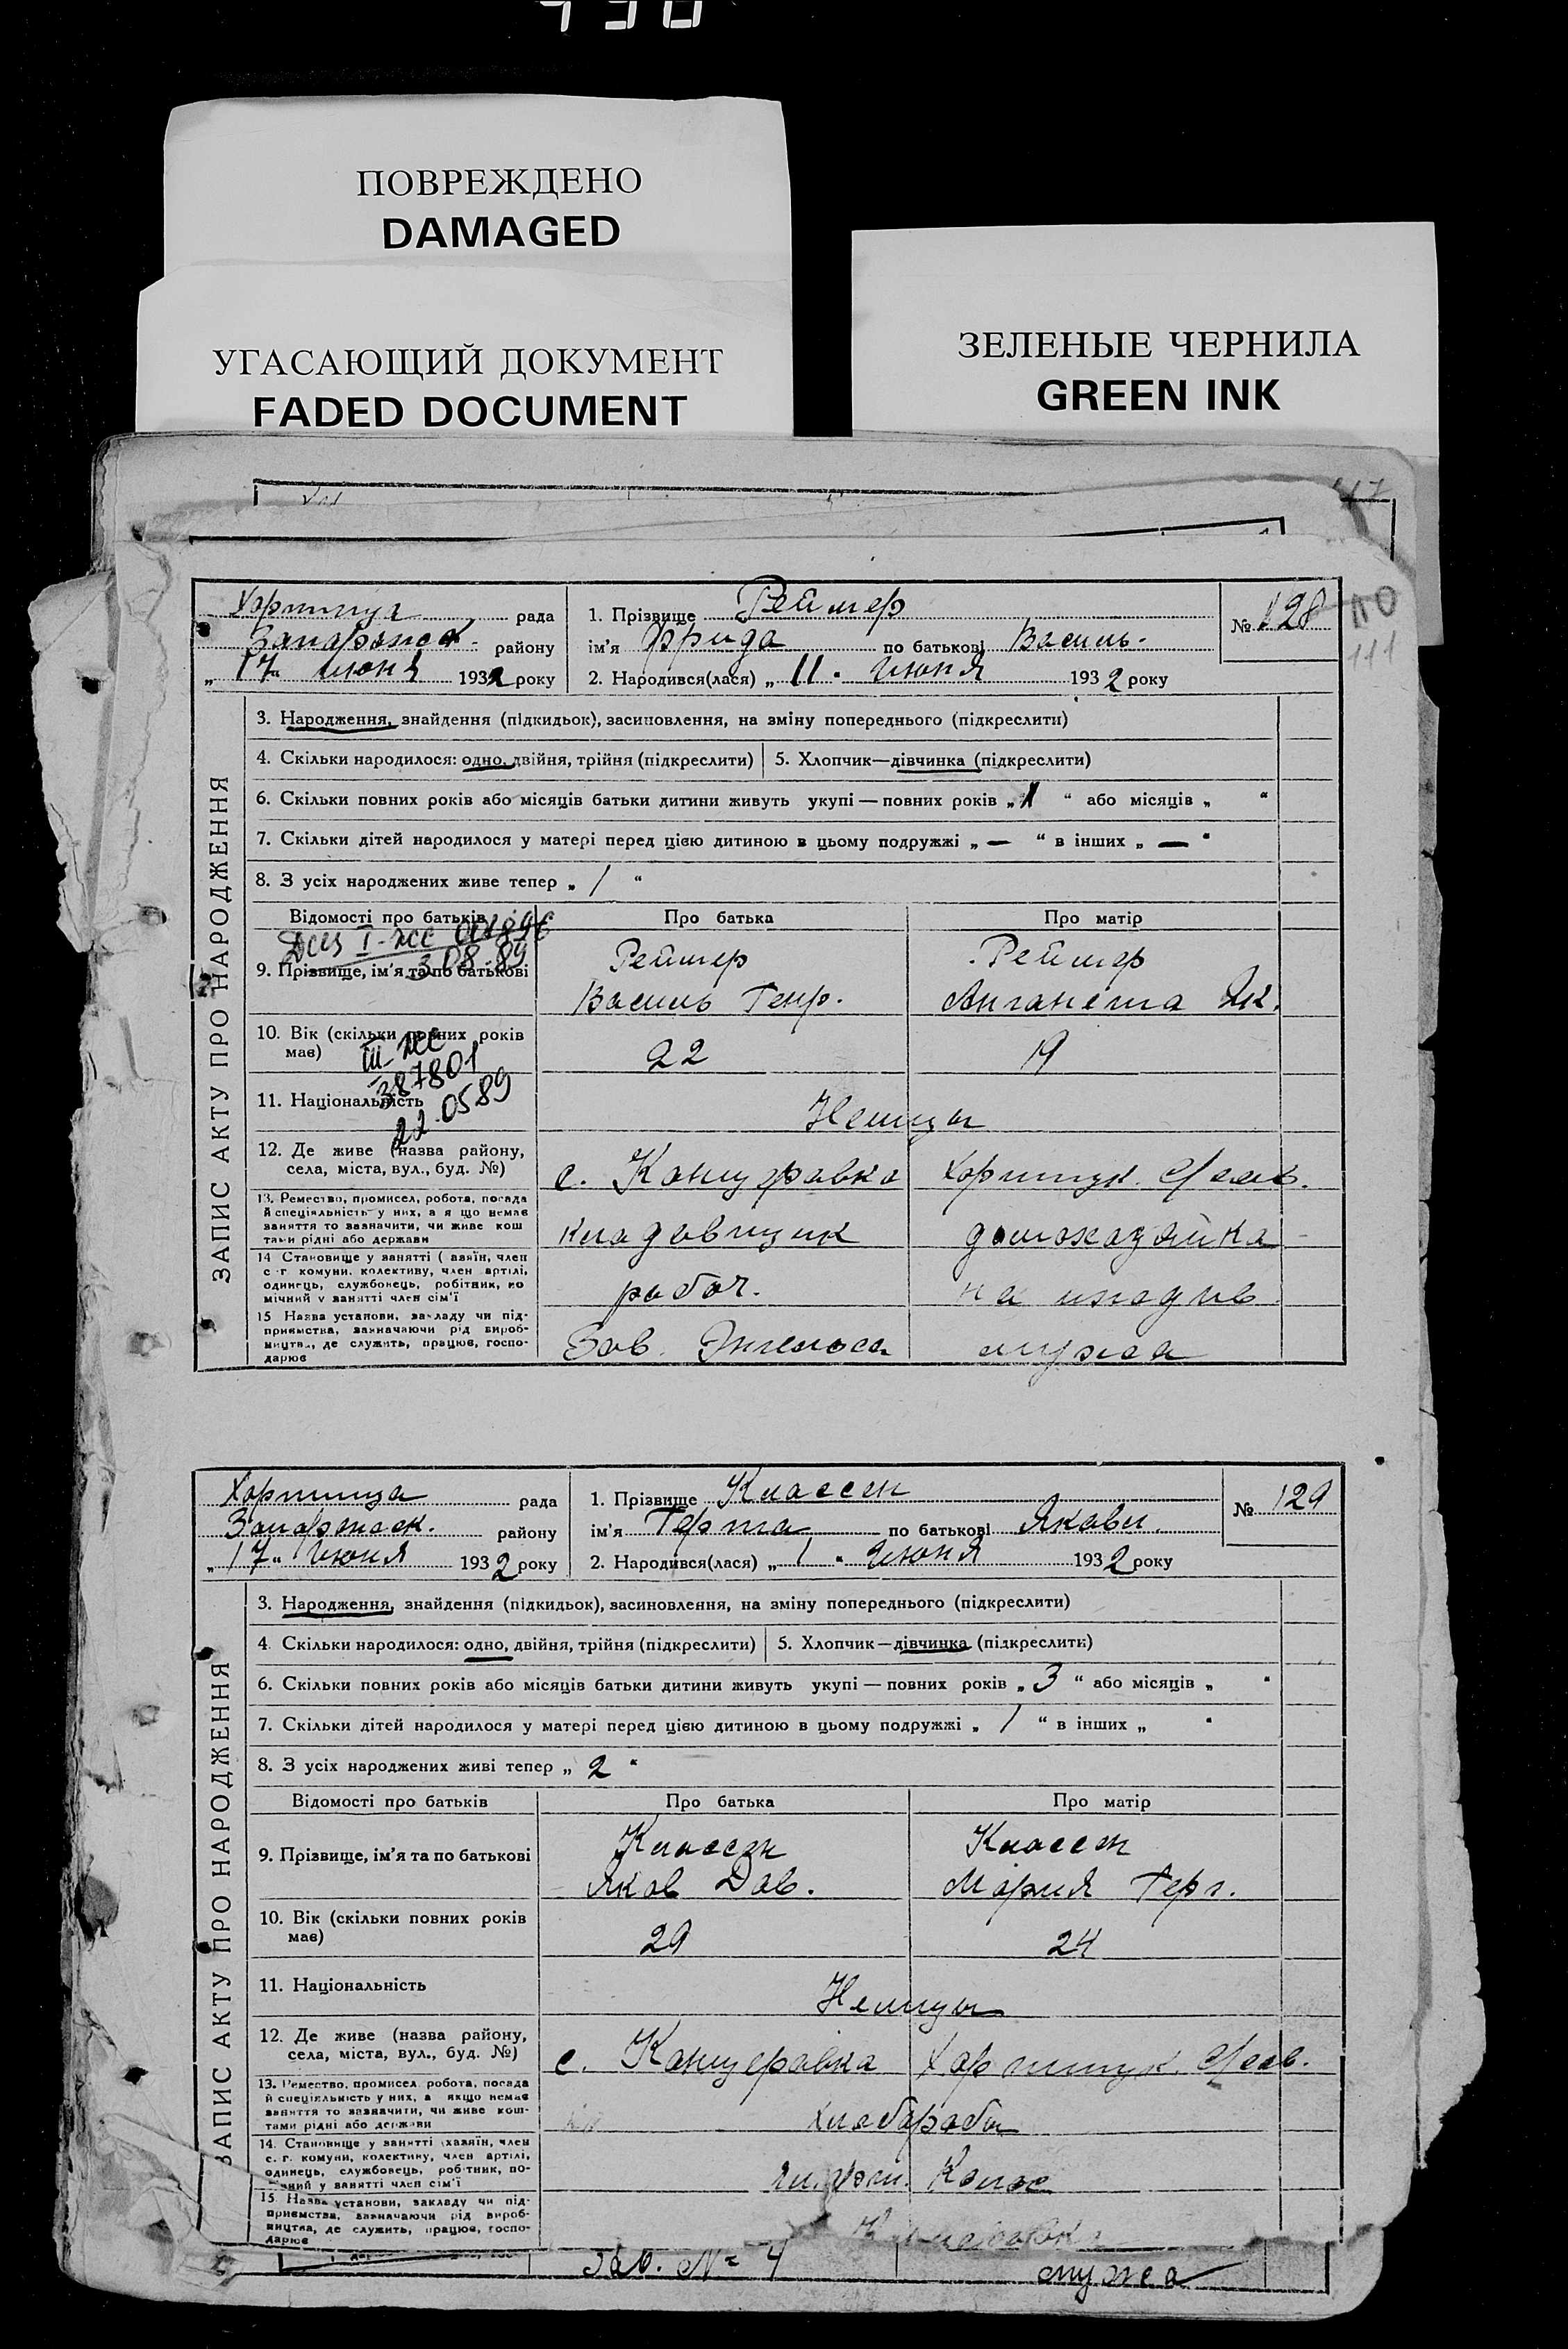 ПОВРЕЖДЕНО
DAMAGED
УГАСАЮЩИЙ ДОКУМЕНТ
FADED DOCUMENT
ЗЕЛЕНЫЕ ЧЕРНИЛА
GREEN INK
117
рада 1. Прізвище Реймер № 128
110
111
району ім'я Фрида по батькові Василь.
„17“ июня 1932 року 2. Народився(лася) „11“ июня 1932 року
ЗАПИС АКТУ ПРО НАРОДЖЕННЯ
3. Народження, знайдення (підкидьок), засиновлення, на зміну попереднього (підкреслити)
4. Скільки народилося: одно, двійня, трійня (підкреслити) 5. Хлопчик—дівчинка (підкреслити)
6. Скільки повних років або місяців батьки дитини живуть укупі — повних років „1“ або місяців „ “
7. Скільки дітей народилося у матері перед цією дитиною в цьому подружжі „—“ в інших „—“
8. З усіх народжених живе тепер „1“
Відомості про батьків Про батька Про матір
9. Прізвище, ім'я та по батькові Реймер Реймер
Василь Генр. Анганета Як.
10. Вік (скільки повних років має) 22 19
III-ЖС
387801
22.05.89
11. Національність Немцы
12. Де живе (назва району, села, міста, вул., буд. №) с. Канцеровка Хортицк. с/сов.
13. Ремество, промисел, робота, посада й спеціяльність у них, а я що немає заняття то зазначити, чи живе кош тами рідні або держави кладовщик домохазяйка
14 Становище у занятті ( азяїн, член с-г комуни, колективу, член артілі, одинець, службовець, робітник, по мічний у занятті член сім'ї рабоч. на иждив
15 Назва установи, закладу чи підприємства, зазначаючи рід виробництва, де служить, працює, господарює Зав. Энгельса мужа
Хортица рада 1. Прізвище Классен № 129
Запорожск. району ім'я Герта по батькові Яковл.
„17“ июня 1932 року 2. Народився(лася) „1“ июня 1932 року
ЗАПИС АКТУ ПРО НАРОДЖЕННЯ
3. Народження, знайдення (підкидьок), засиновлення, на зміну попереднього (підкреслити)
4. Скільки народилося: одно, двійня, трійня (підкреслити) 5. Хлопчик—дівчинка (підкреслити)
6. Скільки повних років або місяців батьки дитини живуть укупі — повних років „3“ або місяців „ “
7. Скільки дітей народилося у матері перед цією дитиною в цьому подружжі „1“ в інших „ “
8. З усіх народжених живі тепер „2“
Відомості про батьків Про батька Про матір
9. Прізвище, ім'я та по батькові Классен Классен
Яков Дав. Мария Герг.
10. Вік (скільки повних років має) 29 24
11. Національність Немцы
12. Де живе (назва району, села, міста, вул., буд. №) с. Канцеровка Хортицк. с/сов.
13. Ремество, промисел робота, посада й спеціяльність у них, а якщо немає заняття то зазначити, чи живе коштами рідні або держави хлебаробы
14. Становище у занятті хазяїн, член с. г. комуни, колективу, член артілі, одинець, службовець, робітник, по- чний у занятті член сім'ї
15. Назва установи, закладу чи підприємства, зазначаючи рід виробництва, де служить, працює, господарює
Зав. № 4 мужа